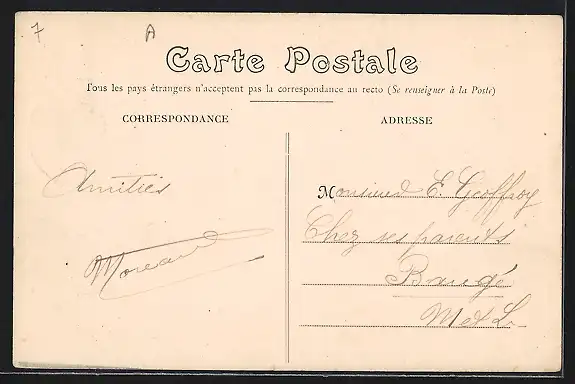 7 A
Carte Postale
Tous les pays étrangers n'acceptent pas la correspondance au recto (Se renseigner à la Poste)
CORRESPONDANCE
ADRESSE
Amitiés
Moreau
Monsieur E. Geoffroy
Chez ses parents
Baugé
M et L.